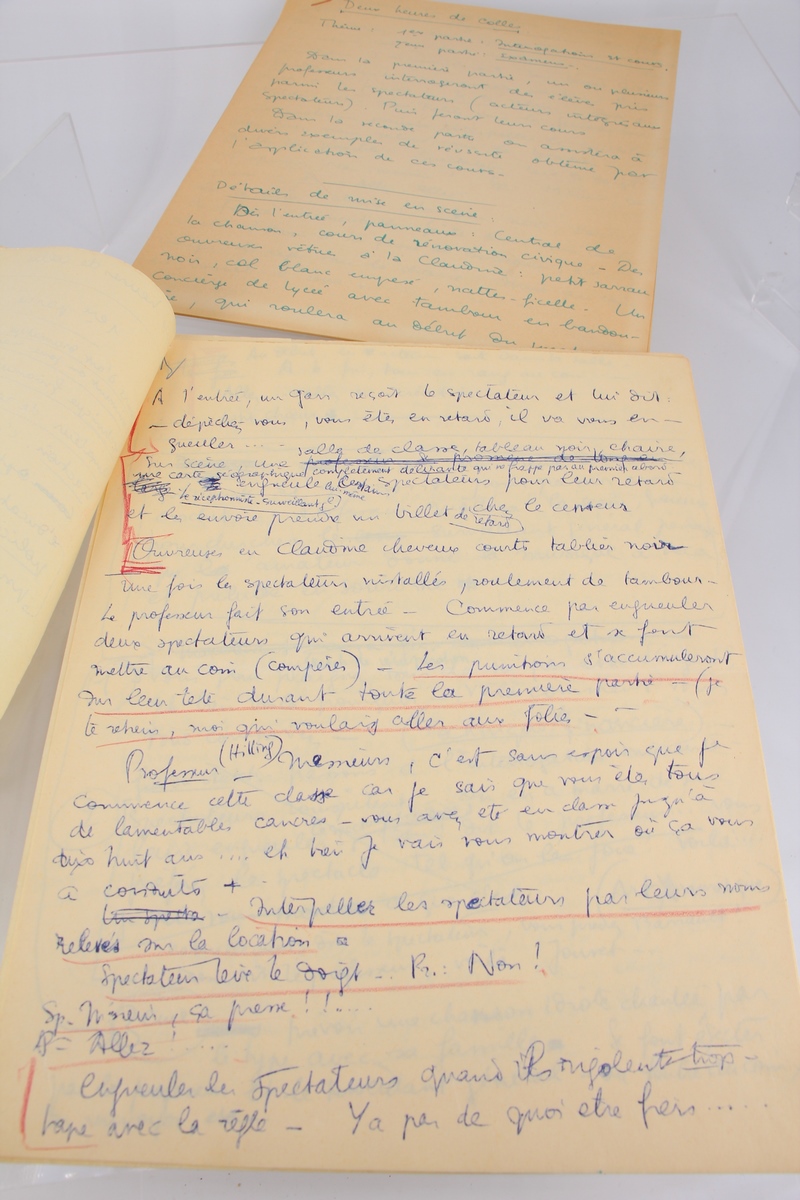 Deux heures de colles
Thème : 1ère partie : Interrogations et cours.
2ème partie :
Dans la première partie, un ou plusieurs
professeurs interrogeront des élèves pris
parmi les spectateurs (acteurs intégrés aux
spectateurs). Puis feront leurs cours
Dans la seconde partie on assistera à
divers exemples de réussite obtenue par
l'application de ces cours.
Détails de mise en scène :
Dès l'entrée, panneaux : Central de
la chanson, cours de rénovation civique - Des
ouvreuses vêtues à la Claudine : petit sarrau
noir, col blanc empesé, nattes-ficelle. Un
concierge de lycée avec tambour en bandou-
, qui roulera au début du
1/
A l'entrée, un gars reçoit le spectateur et lui dit :
- dépêchez vous, vous êtes en retard, il va vous en-
gueuler ....
salle de classe, tableau noir, chaire,
Sur scène, une professeur
une carte géographique complètement délirante qui ne frappe pas au premier abord
engueule les spectateurs pour leur retard
(le réceptionniste-surveillant)
et les envoie prendre un billet de retard chez le censeur
Ouvreuses en Claudine cheveux courts tablier noir
Une fois les spectateurs installés, roulement de tambour -
Le professeur fait son entrée - Commence par engueuler
deux spectateurs qui arrivent en retard et se font
mettre au coin (compères) - Les punitions s'accumuleront
sur leur tête durant toute la première partie - (je
te retiens, moi qui voulais aller aux folies -
Professeur (Hilling) - Messieurs, c'est sans espoir que je
commence cette classe car je sais que vous êtes tous
de lamentables cancres - vous avez été en classe jusqu'à
dix huit ans .... eh bien je vais vous montrer où ça vous
a conduits +
- Interpeller les spectateurs par leurs noms
relevés sur la location
Spectateur lève le doigt .. Pr.: Non !
Sp. M'sieur, ça presse !!....
P= Allez !....
Engueuler les spectateurs quand ils rigolent trop -
tape avec la règle - Y a pas de quoi être fiers .....